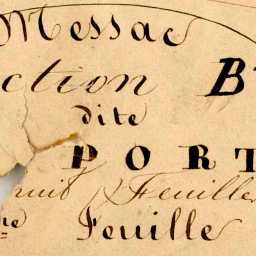 Messac
ction B
dite
PORT
nuit Feuille
me Feuille